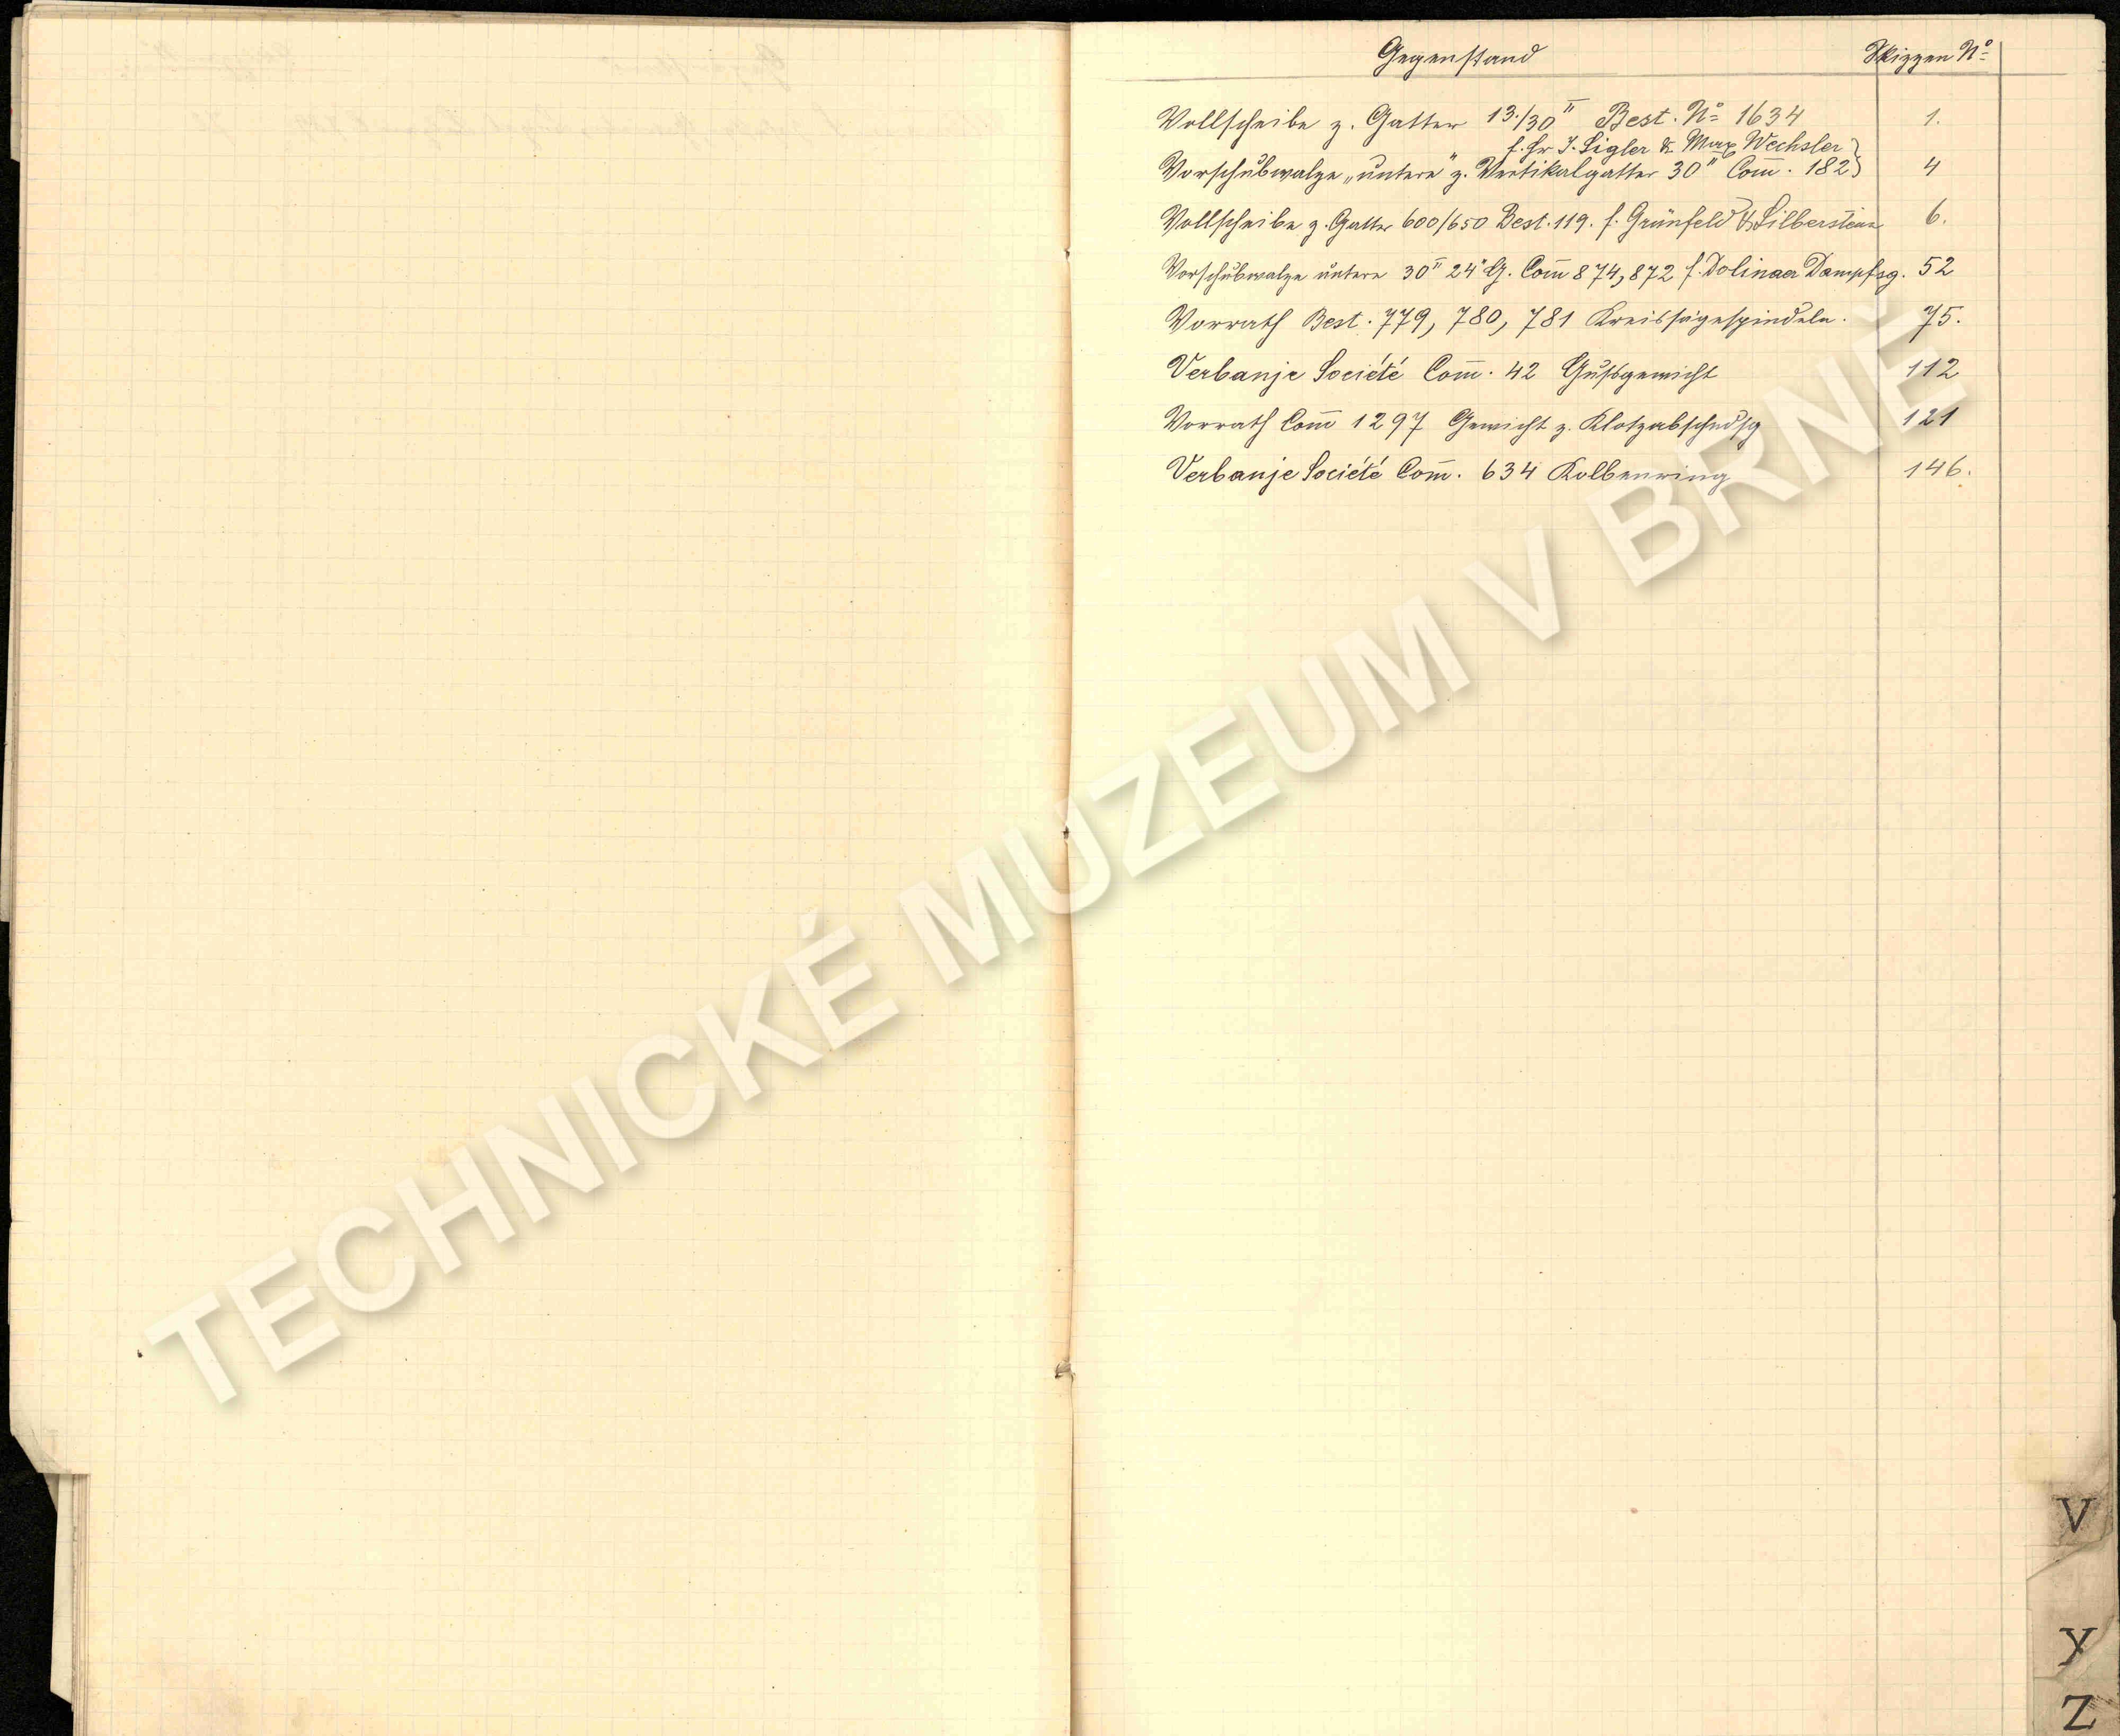 Gegenstand Skizzen No
Vollscheibe z. Gatter 13./30" Best. No 1634 1.
f. Hr J. Sigler & Max Wechsler
Vorschubwalze „untere" z. Vertikalgatter 30" Com̅. 182 4
Vollscheibe z. Gatter 600/650 Best. 119. f. Grünfeld & Silberstein 6.
Vorschubwalze untere 30" 24" Com̅ 874, 872 f. Dolinaer Dampfsg. 52
Vorrath Best. 779, 780, 781 Kreissägespindeln. 75.
Verbanje Société Com̅. 42 Gußgewicht 112
Vorrath Com̅ 1297 Gewicht z. 121
Verbanje Société Com̅. 634 Kolbenring 146.
TECHNICKÉ MUZEUM V BRNĚ
V
Y
Z